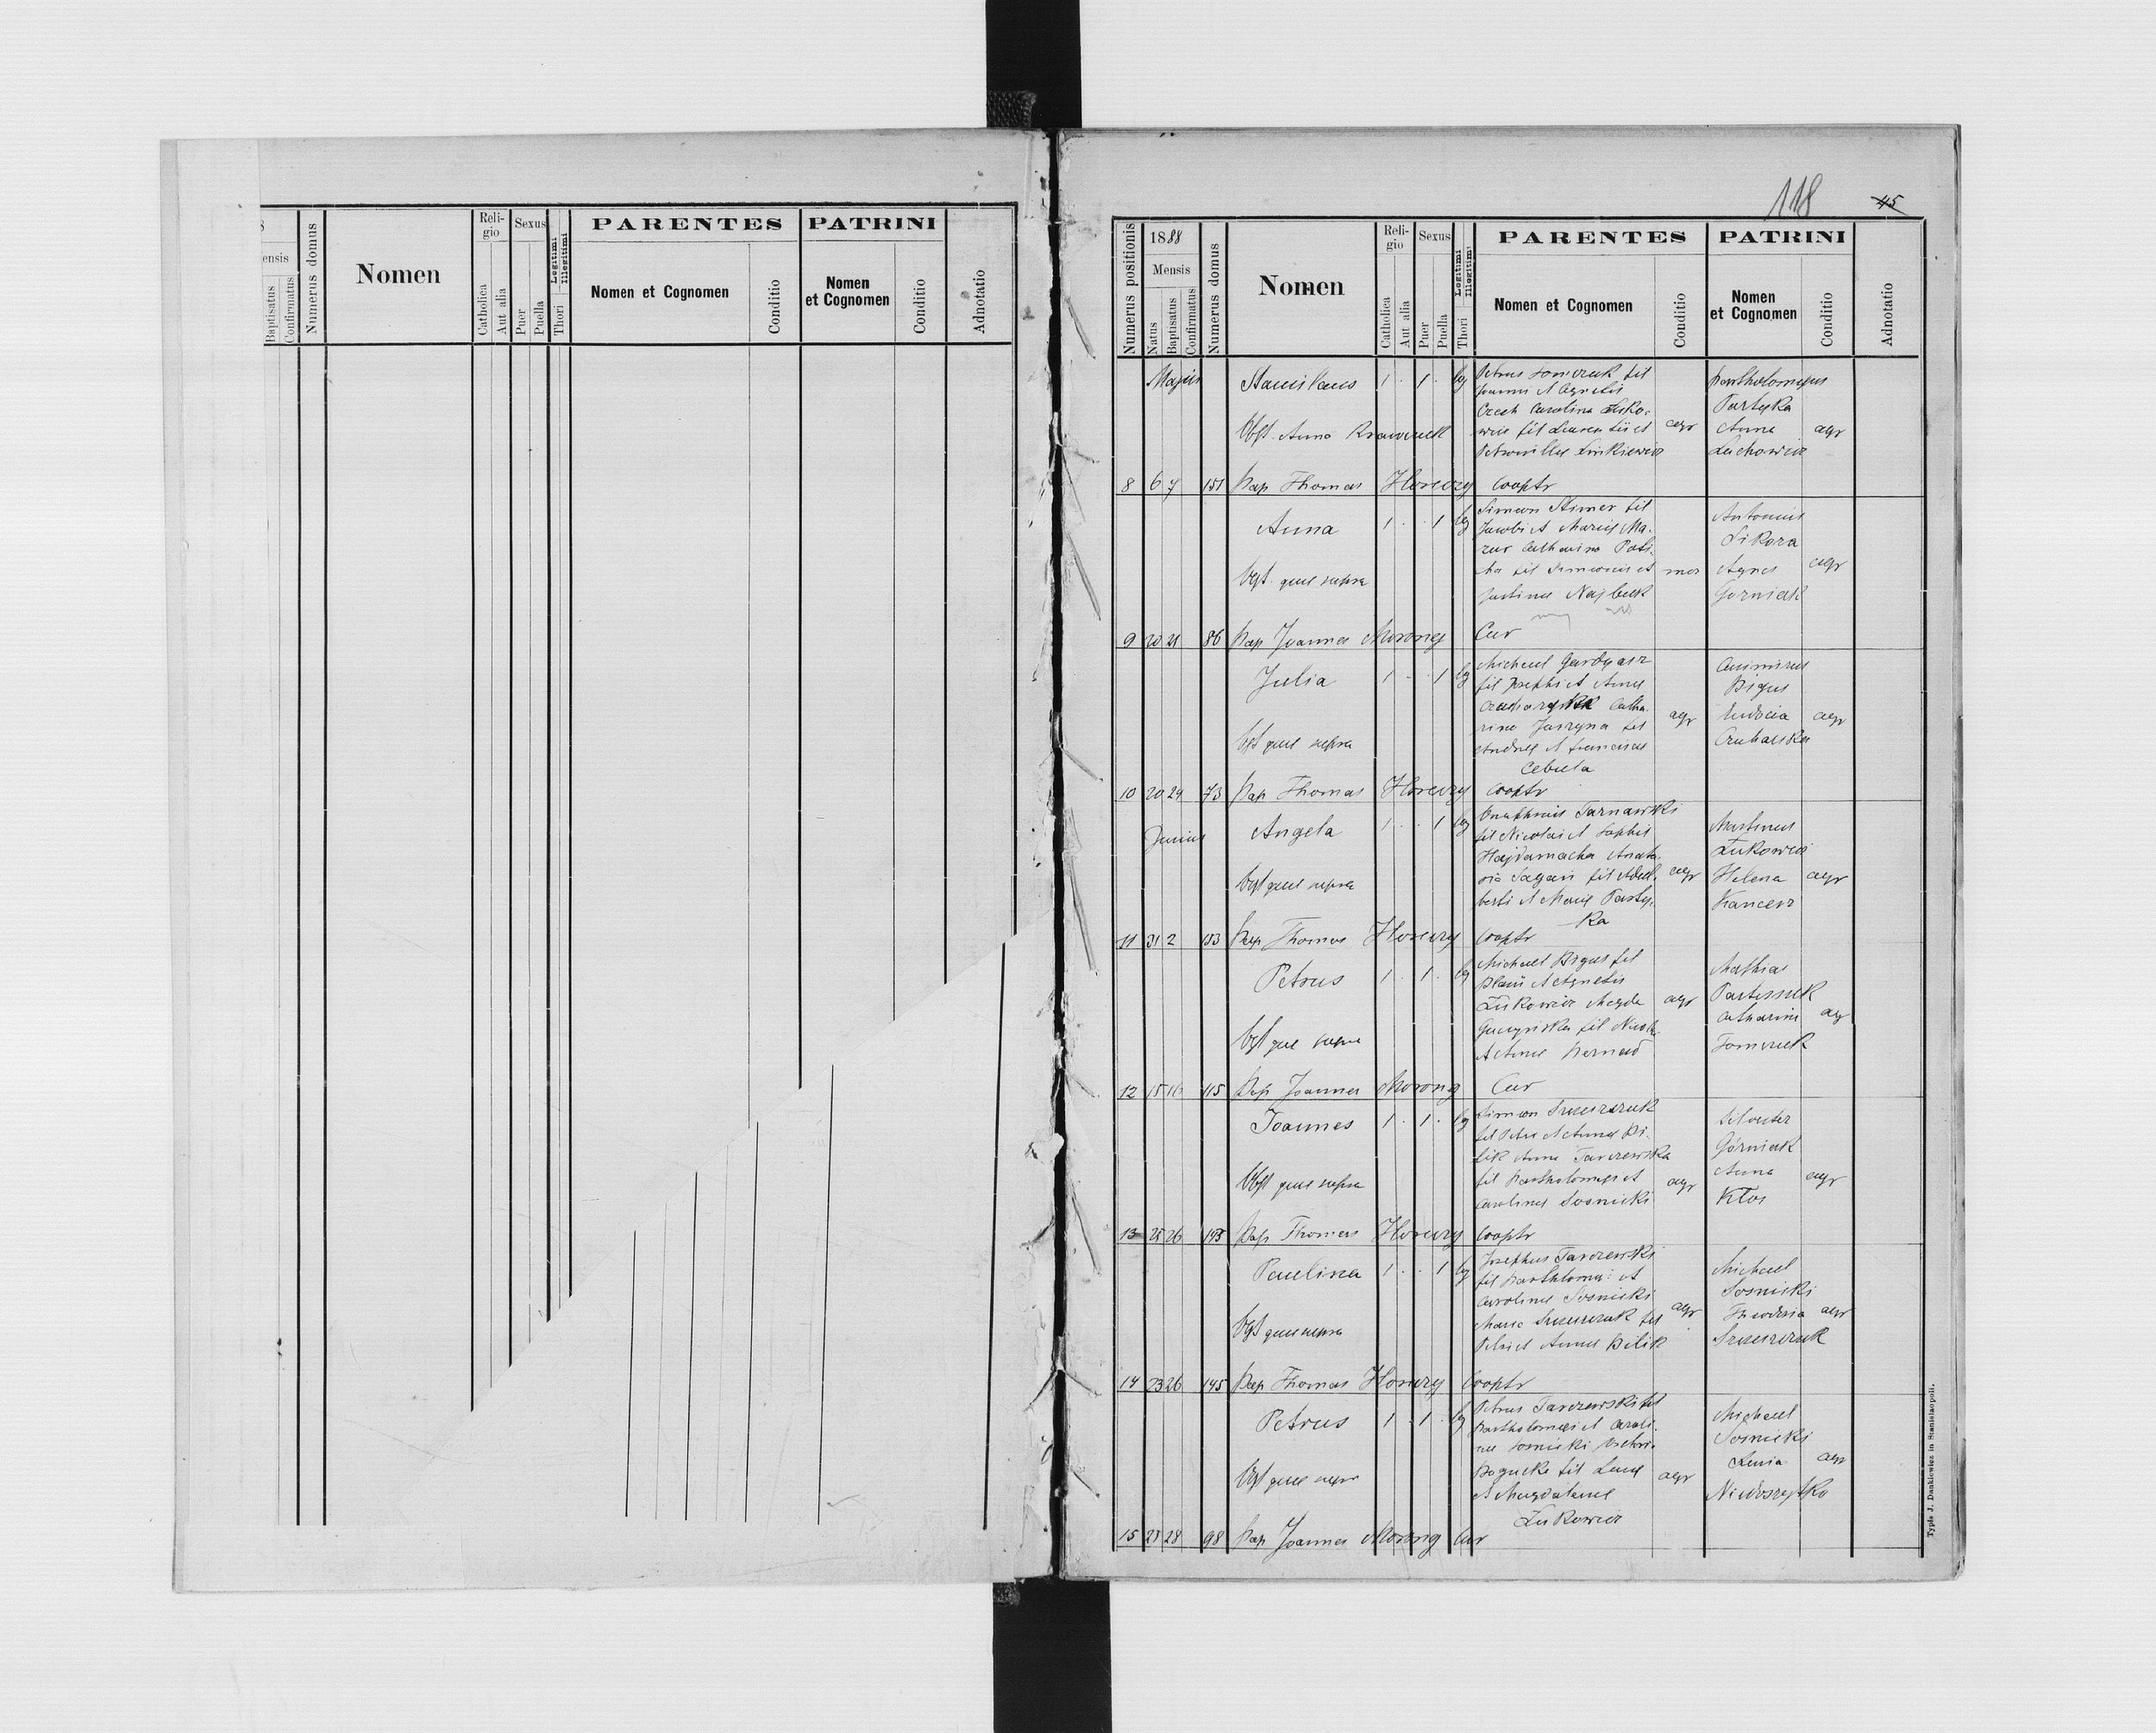 ensis
Baptisatus
Confirmatus
Numerus domus
Nomen
Reli-
gio
Catholica
Aut alia
Sexus
Puer
Puella
Legitimi
Illegitimi
Thori
PARENTES
Nomen et Cognomen
Conditio
PATRINI
Nomen
et Cognomen
Conditio
Adnotatio
118
45
Numerus positionis
1888
Mensis
Natus
Baptisatus
Confirmatus
Numerus domus
Nomen
Reli-
gio
Catholica
Aut alia
Sexus
Puer
Puella
Legitimi
Illegitimi
Thori
PARENTES
Nomen et Cognomen
Conditio
PATRINI
Nomen
et Cognomen
Conditio
Adnotatio
Majus
Stanislaus 1 . 1 . lg
Obst. Anna Krawczuk
Petrus Tomczuk fil
Joannis et Agnetis
Czech Carolina Luko-
wicz fil Laurentii et
Petronillae Linkiewicz
agr
Bartholomeus
Partyka
Anna
Luchowicz
agr
8 6 7 151 Bap Thomas Horeczy Cooptr
Anna 1 . . 1 lg
Obst. quae supra
Simeon Stimer fil
Jacobi et Mariae Ma-
zur Catharina
fil Simeonis et
Justinae Najbuck
Antonius
Sikora
Agnes
Gorniak
agr
9 20 21 86 Bap Joannes Morong Cur
Julia 1 . . 1 lg
Obst quae supra
Michael Gardyasz
fil Josephi et Annae
Catha-
rina Jaszyna fil
Andreae et Franciscae
Cebula
agr
Casimirus
Bigus
Eudocia
Czuhanska
agr
10 20 24 73 Bap Thomas Horeczy Cooptr
Junius
Angela 1 . . 1 lg
Obst quae supra
Onuphrius Tarnawski
fil Nicolai et Sophiae
Hajdamacha Anasta-
sia Sagan fil Adal-
berti et Mariae Party-
ka
agr
Martinus
Lukowicz
Helena
Kancerz
agr
11 31 2 153 Bap Thomas Horeczy Cooptr
Petrus 1 . 1 . lg
Obst quae supra
Michael Bigus fil
Blasii et Agnetis
Lukowicz Magda
fil Nicolai
et Annae Bernad
agr
Mathias
Catharina
Tomczuk
ag
12 15 16 115 Bap Joannes Morong Cur
Joannes 1 . 1 . lg
Obst quae supra
Simeon Szewczuk
fil Petri et Annae Bi-
lik Anna Tarczewska
fil Bartholomei et
Carolinae Sosnicki
agr
Silvester
Górniak
Anna
Kłos
agr
13 25 26 143 Bap Thomas Horeczy Cooptr
Paulina 1 . . 1 lg
Obst quae supra
Josephus Tarczewski
fil Bartholomei et
Carolinae Sosnicki
Maria Szewczuk fil
Petri et Annae Bilik
agr
Michael
Sosnicki
Theodosia
Szewczuk
agr
14 23 26 145 Bap Thomas Horeczy Cooptr
Petrus 1 . 1 . lg
Obst quae supra
Petrus Tarczewski fil
Bartholomei et Caroli-
nae Sosnicki Victori-
Bogucka fil Lucae
et Magdalenae
Lukowicz
agr
Michael
Sosnicki
Xenia
Niedoszytko
agr
15 27 28 98 Bap Joannes Morong Cur
Typis J. Dankiewicz in Stanislaopoli.